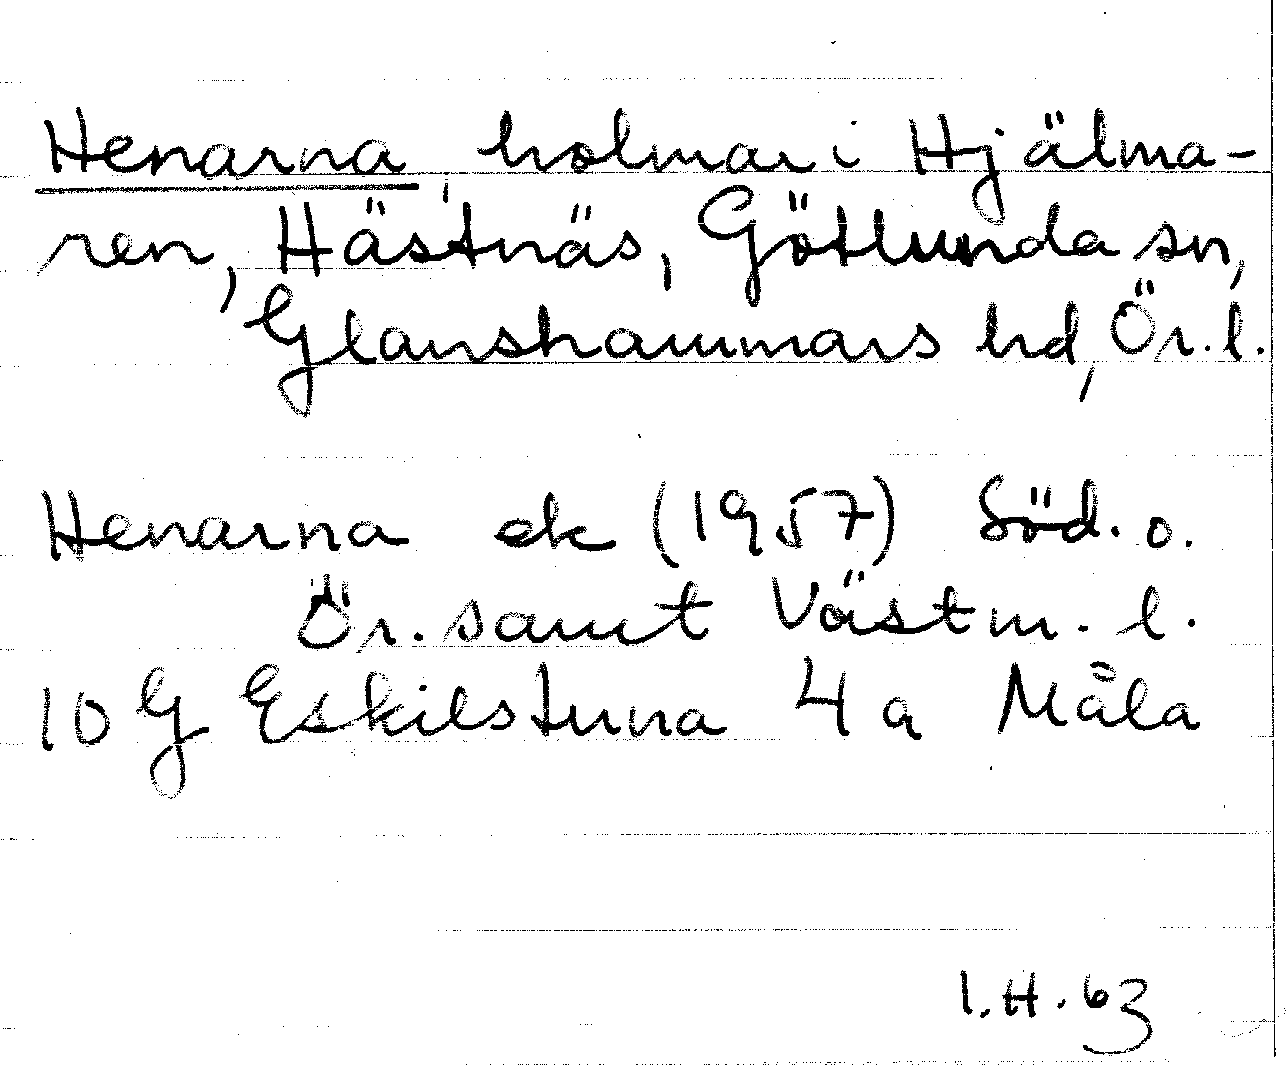 Henarna, holmar i Hjälma-
ren, Hästnäs, Götlunda sn,
Glanshammars hd, Ör. l.
Henarna ek (1957) Söd. o.
Ör. samt Västm. l.
10 G Eskilstuna 4 a Måla
I. H. 63